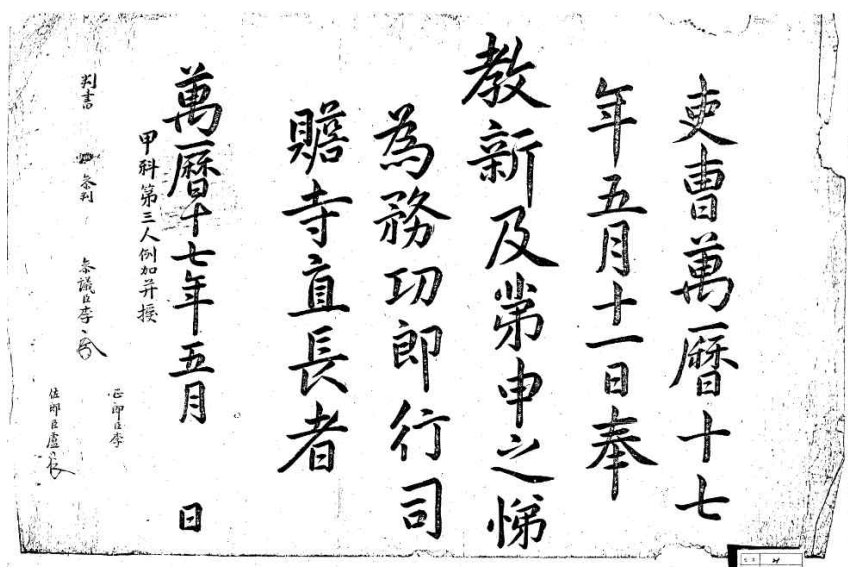 吏曹萬曆十七
年五月十一日奉
教新及第申之悌
為務功郎行司
贍寺直長者
萬曆十七年五月 日
甲科第三人例加并授
判書 參判 參議臣李
正郎臣李
佐郎臣盧